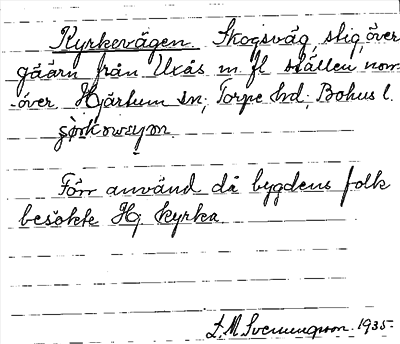 Kyrkevägen. Skogsväg, stig, över
gäärn från Uxås m. fl ställen norr
över, Hjärtum sn, Torpe hd, Bohus l.
Förr använd då bygdens folk
besökte Hj kyrka
L. M. Svenungsson. 1935.